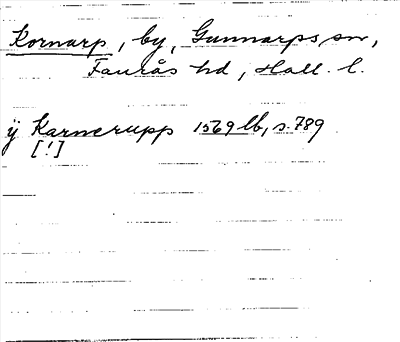 Kornarp, by, Gunnarps sn,
Faurås hd, Hall. l.
ÿ Karnerupp 1569 lb, s. 789
[!]